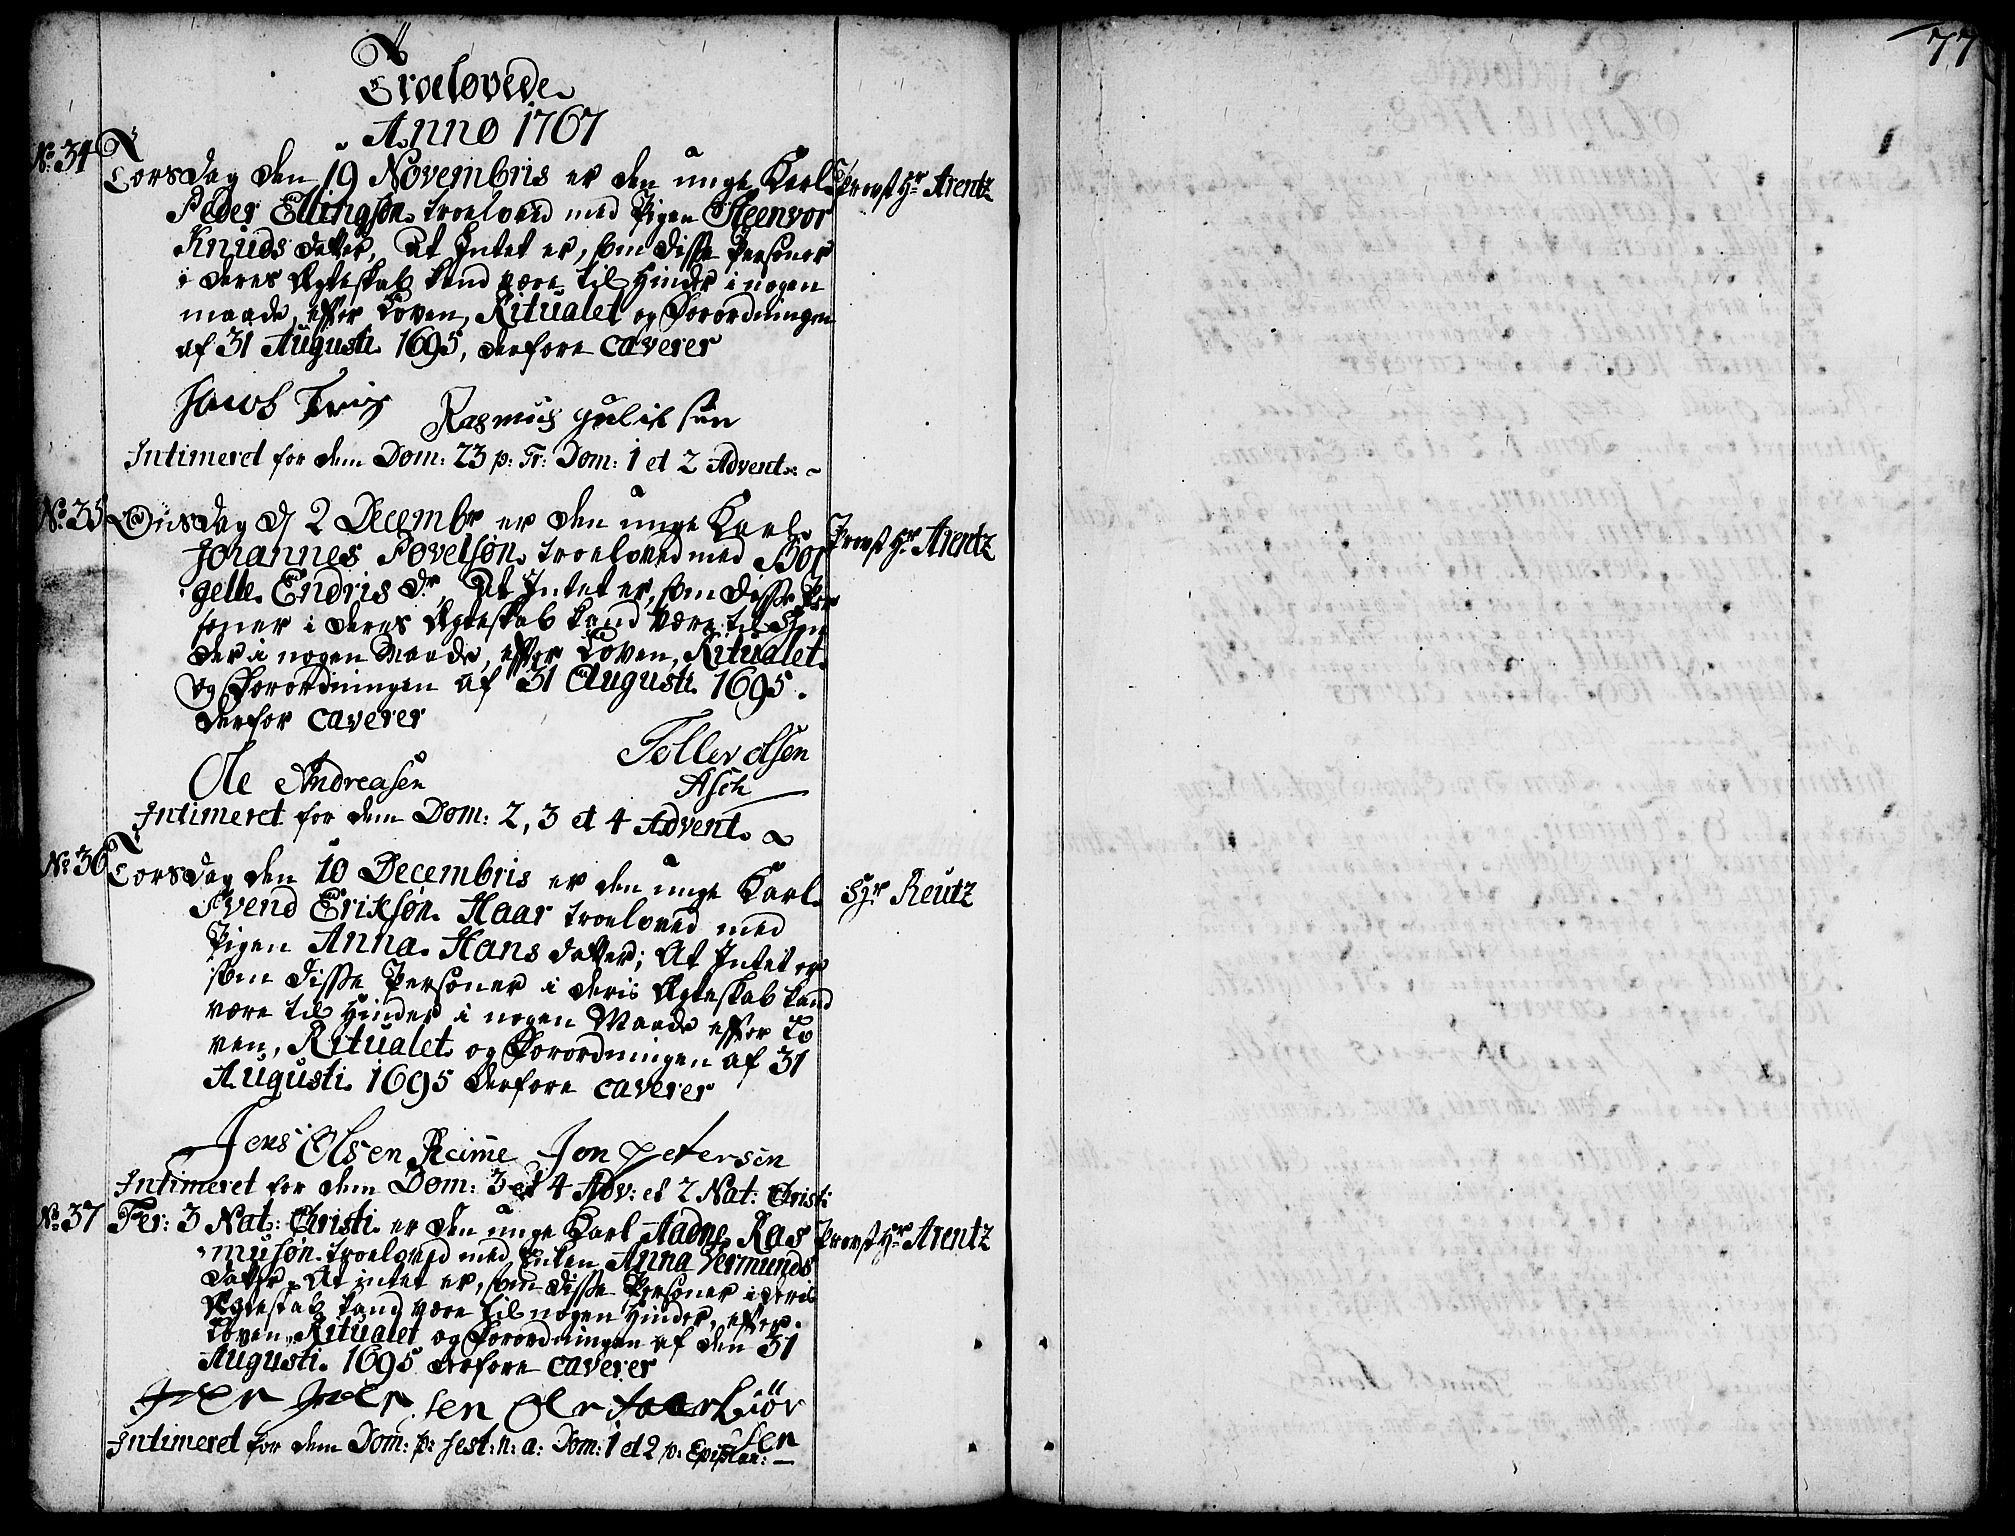 77
Troelovede
Anno 1767
No: 34 Torsdag den 19 Novembris er den unge Karl Provst Hr Arentz
Peder Ellingsøn troelovед med Pigen Steenvor
Knuds datter, At Intet er, som disse Personer
i deres Ægteskab kand være til Hinder i nogen
maade, efter Loven, Ritualet og Forordningen
af 31 Augusti 1695, derfore caverer
Jacob Rasmus
Intimeret for dem Dom: 23 p: Tr: Dom: 1 et 2 Advent:
No: 35 Onsdag d 2 Decembr er den unge Karl Provst Hr Arentz
Johannes Povelsøn troeloved med Bor
gelle Endris dr, At Intet er, som disse Per
soner i deres Ægteskab kand være til Hin
der i nogen Maade, efter Loven, Ritualet
og Forordningen af 31 Augusti 1695.
derfor caverer
Ole Andreasen Tollev Olsen
Asch
Intimeret for dem Dom: 2, 3 et 4 Advent.
No: 36 Torsdag den 10 Decembris er den unge Karl Sgr Reutz
Svend Eriksøn Haar troeloved med
Pigen Anna Hans datter; At Intet er
som disse Personer i deris Ægteskab kand
være til Hinder i nogen Maade efter Lo
ven, Ritualet og Forordningen af 31
Augusti 1695 derfore caverer
Jens Olsen Reime Jon Petersen
Intimeret for dem Dom: 3 et 4 Adv: et 2 Nat: Christi
No: 37 Fer: 3 Nat: Christi er den unge Karl Aadne Ras Provst Hr Arentz
musøn troeloved med Enken Anna Vermunds
datter, At intet er, som disse Personer i deris
Ægteskab kand være til nogen Hinder, efter
Loven, Ritualet og Forordningen af den 31
Augusti 1695 derfore caverer
Iver Iversen
sen
Intimeret for dem Dom: p: fest: n: a: Dom: 1 et 2 p: Epiphan: